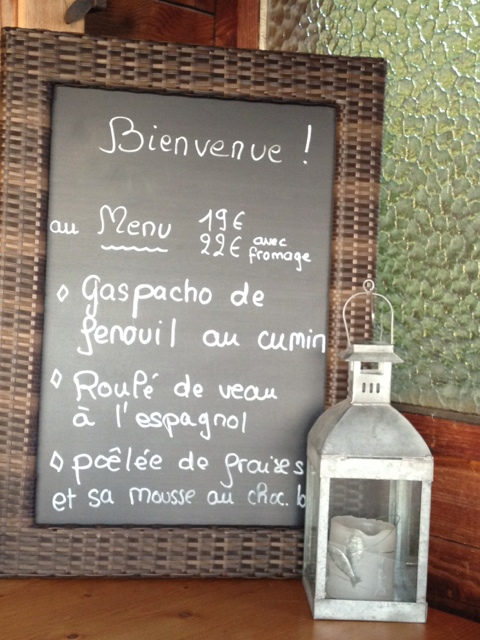 Bienvenue !
au Menu 19€
22€ avec fromage
◊ Gaspacho de
fenouil au cumin
◊ Roulé de veau
à l'espagnol
◊ poêlée de fraises
et sa mousse au choc. b